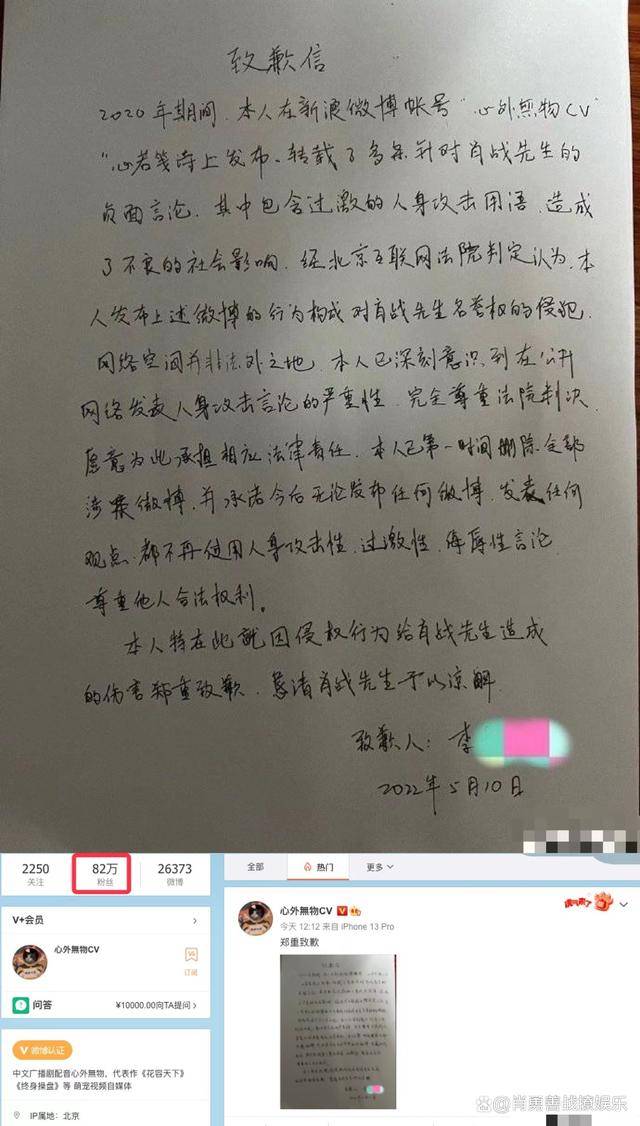 致歉信
2020年期间,本人在新浪微博帐号“心外無物CV”
“心若笺诗上发布、转载了多条针对肖战先生的
负面言论,其中包含过激的人身攻击用语,造成
了不良的社会影响,经北京互联网法院判定认为,本
人发布上述微博的行为构成对肖战先生名誉权的侵犯.
网络空间并非法外之地,本人已深刻意识到在公开
网络发表人身攻击言论的严重性,完全尊重法院判决,
愿意为此承担相应法律责任.本人已第一时间删除全部
涉案微博,并承诺今后无论发布任何微博,发表任何
观点,都不再使用人身攻击性、过激性、侮辱性言论,
尊重他人合法权利。
本人特在此就因侵权行为给肖战先生造成
的伤害郑重致歉,恳请肖战先生予以谅解.
致歉人:李
2022年5月10日
2250 82万 26373
关注 粉丝 微博
V+会员
心外無物CV
订阅
问答 ¥10000.00向TA提问
微博认证
中文广播剧配音心外無物,代表作《花容天下》
《终身操盘》等 萌宠视频自媒体
IP属地:北京
全部 热门 更多
心外無物CV
今天 12:12 来自 iPhone 13 Pro
郑重致歉